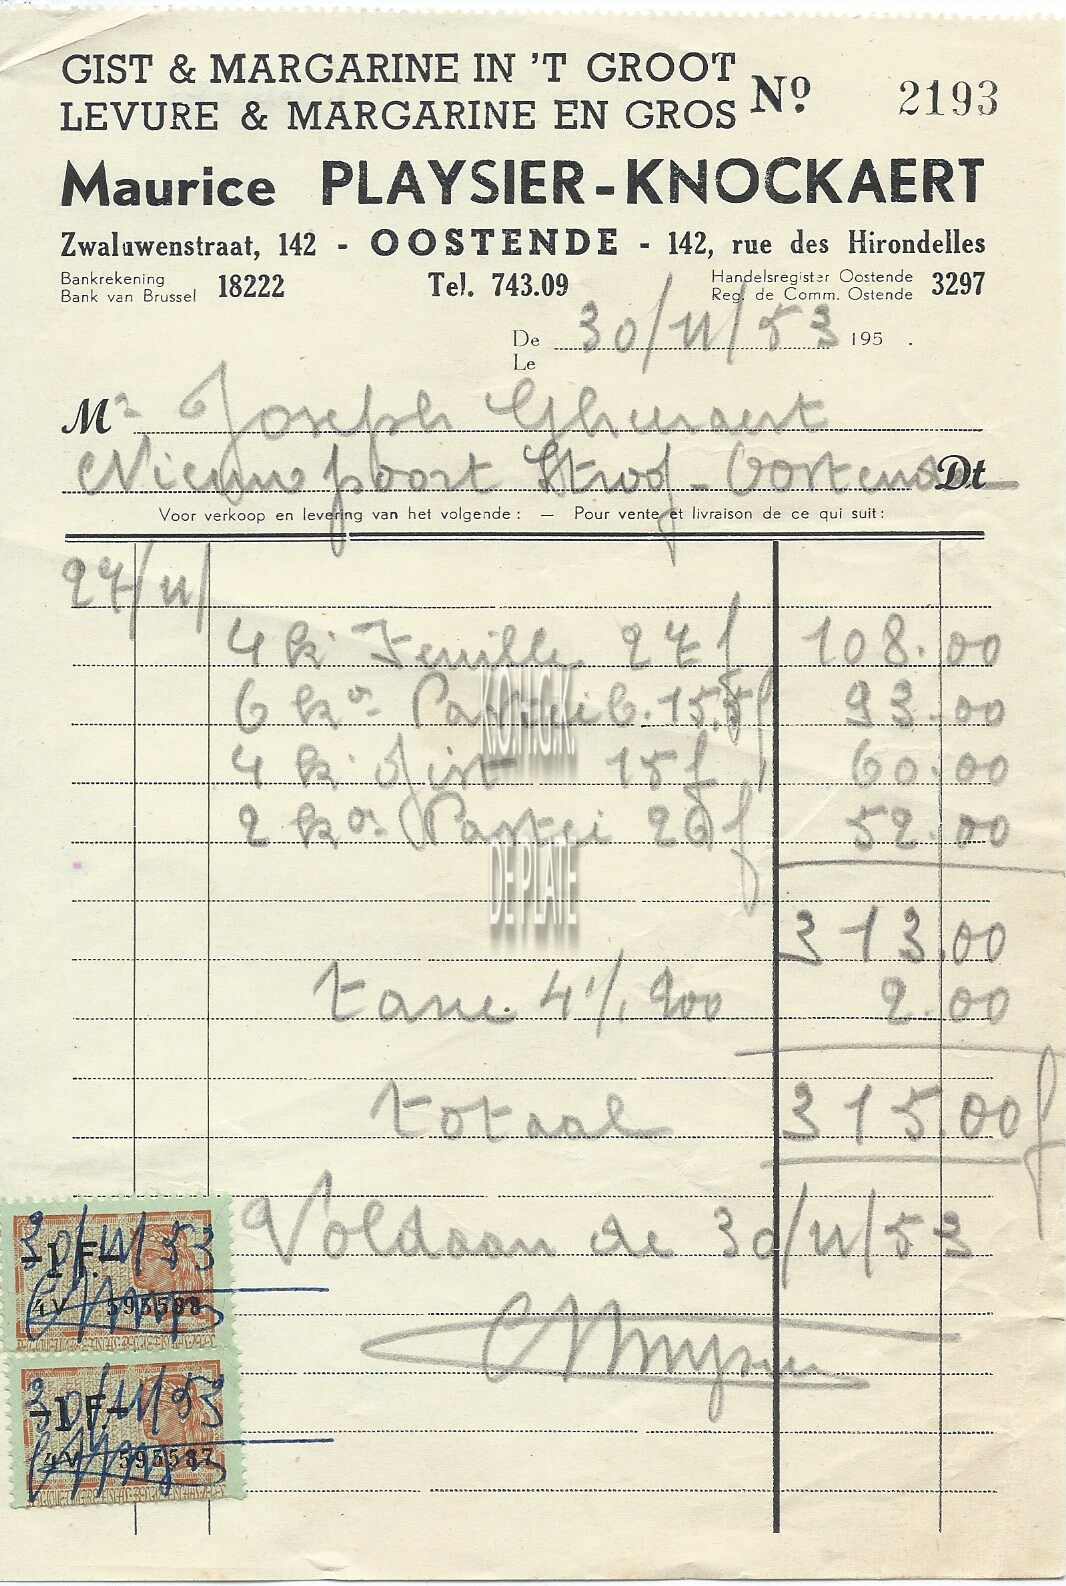 GIST & MARGARINE IN 'T GROOT
LEVURE & MARGARINE EN GROS
Nº 2193
Maurice PLAYSIER-KNOCKAERT
Zwaluwenstraat, 142 - OOSTENDE - 142, rue des Hirondelles
Bankrekening
Bank van Brussel 18222
Tel. 743.09
Handelsregister Oostende
Reg. de Comm. Ostende 3297
De
Le 30/11/53 195 .
Mr Joseph
Oostende Dt
Voor verkoop en levering van het volgende : — Pour vente et livraison de ce qui suit :
27/11/
4 k. Feuille 27 f 108.00
6 ko. 15.5 f 93.00
4 k. Gist 15 f 60.00
2 ko. Pastei 26 f 52.00
313.00
taxe 2.00
totaal 315.00 f
Voldaan de 30/11/53
K.O.H.G.K.
DE PLATE
30/11/53
-1 F.-
4V
30/11/53
-1 F.-
4V 595587